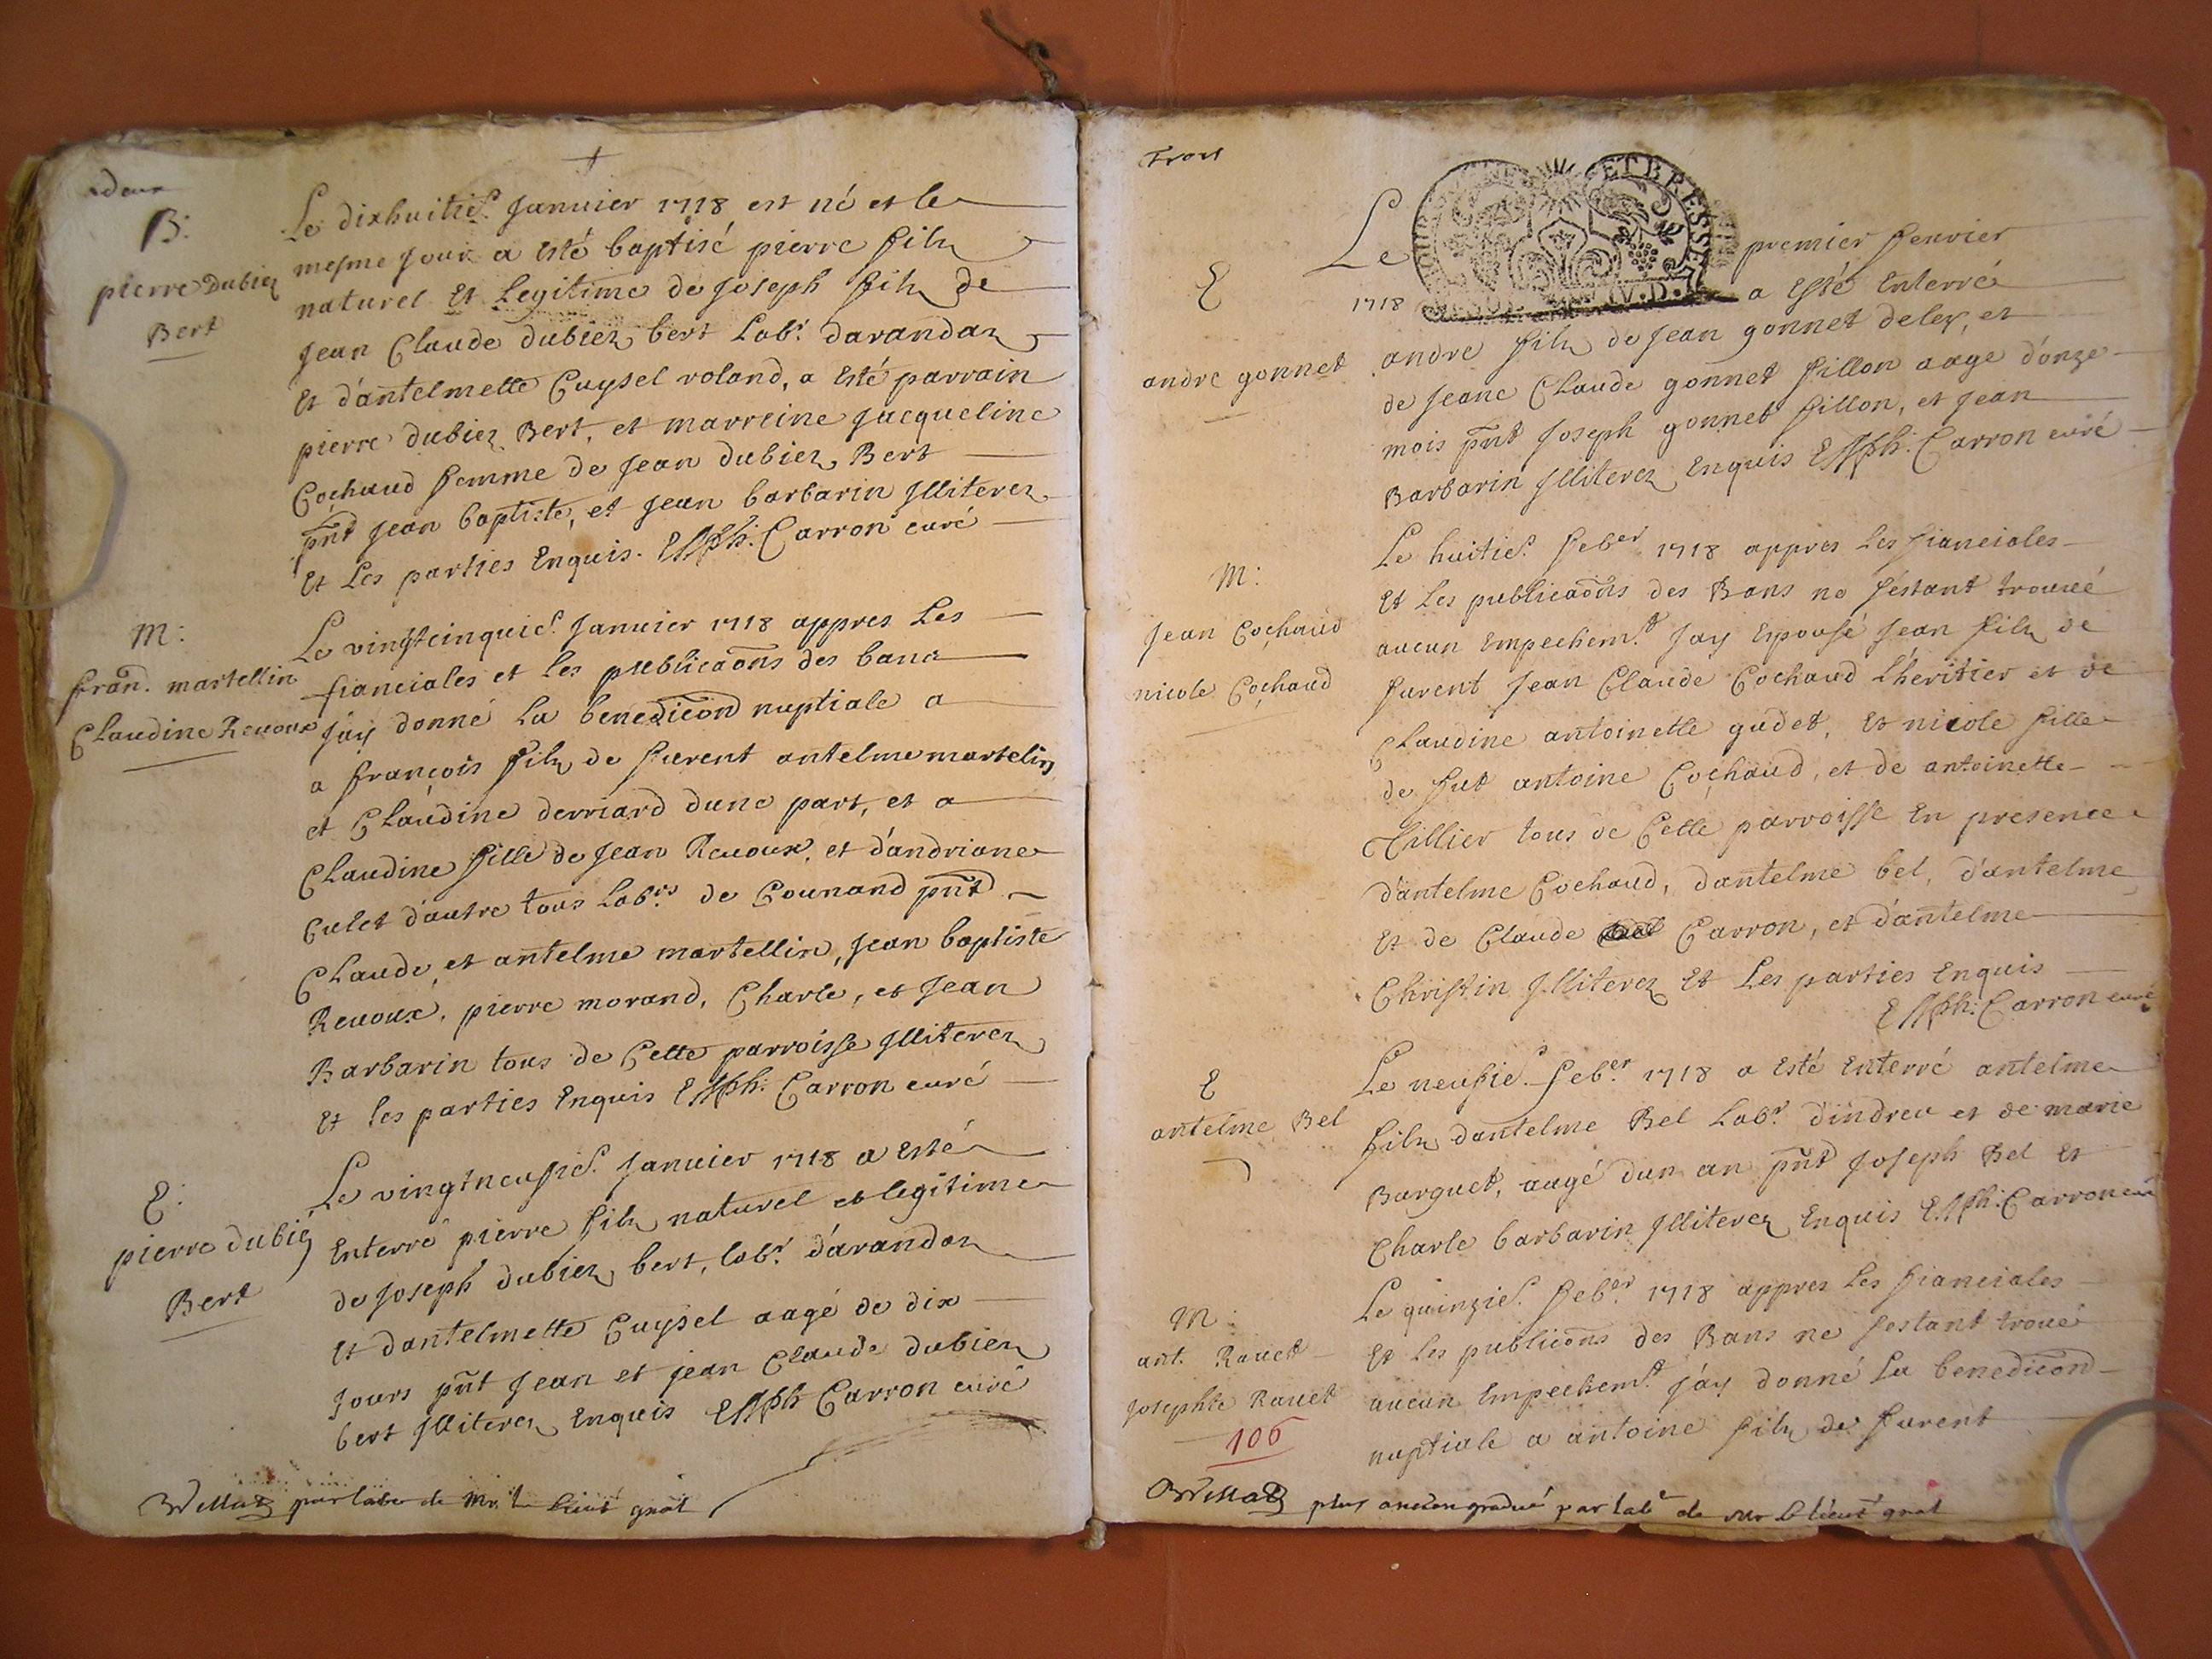 deux
B:
pierre Dubiez
Bert
Le dixhuitie. Januier 1718 est né et le
mesme Jour a esté baptisé pierre filz
naturel et Legitime de Joseph filz de
Jean Claude dubiez bert Labr. darandaz
et d'antelmette Cuysel roland, a esté parrain
pierre dubiez Bert, et marreine Jacqueline
Cochaud femme de Jean dubiez Bert
pnt Jean baptiste, et Jean barbarin Illiterez
et Les parties Enquis. Carron curé
M:
fran. martellin
Claudine Reuoux
Le vingtcinquie. Januier 1718 appres Les
fianciales et les publicaons des bans
J'ay donné La benedicion nuptiale a
a françois filz de furent antelme martelin
et Claudine derriard dune part, et a
Claudine fille de Jean Reuoux, et d'andriane
Culet d'autre tous Labrs. de Counand pnt
Claude, et antelme martellin, Jean baptiste
Reuoux, pierre morand, Charle, et Jean
Barbarin tous de Cette parroisse Illiterez
et les parties Enquis Carron curé
E:
pierre dubiez
Bert
Le vingtneufie. Januier 1718 a esté
Enterré pierre filz naturel et legitime
de Joseph dubiez bert, labr. d'arandaz
et dantelmette Cuysel aagé de dix
Jours pnt Jean et jean Claude dubiez
bert Illiterez Enquis Carron curé
par labce de Mr. le Lieut gnal
Trois
Le premier feurier
1718 a esté Enterré
E
andre gonnet
andre filz de Jean gonnet deley, et
de Jeane Claude gonnet fillon aage d'onze
mois pnt Joseph gonnet fillon, et Jean
Barbarin Illiterez Enquis Carron curé
M:
Jean Cochaud
nicole Cochaud
Le huitie. feber 1718 appres les fianciales
et les publicaons des Bans ne s'estant trouué
aucun Empechemt. Jay Epousé Jean filz de
furent Jean Claude Cochaud L'heritier et de
Claudine antoinette gudet, et nicole fille
de fut antoine Cochaud, et de antoinette
Tillier tous de Cette parroisse En presence
d'antelme Cochaud, dantelme bel, d'antelme
et de Claude Carron, et d'antelme
Christin Illiterez et Les parties Enquis
Carron curé
E
antelme Bel
Le neufie. feber. 1718 a esté Enterré antelme
filz dantelme Bel Labr. dindreu et de marie
Burguet, aagé dun an pnt Joseph Bel et
Charle barbarin Illiterez Enquis Carron curé
M:
ant. Rauet
Josephte Rauet
106
Le quinzie. feber. 1718 appres les fianciales
et Les publicons des Bans ne s'estant troué
aucun Empechemt. J'ay donné La benedicon
nuptiale a antoine filz de furent
plus ancien gradué par labce de Mr le lieut gnal